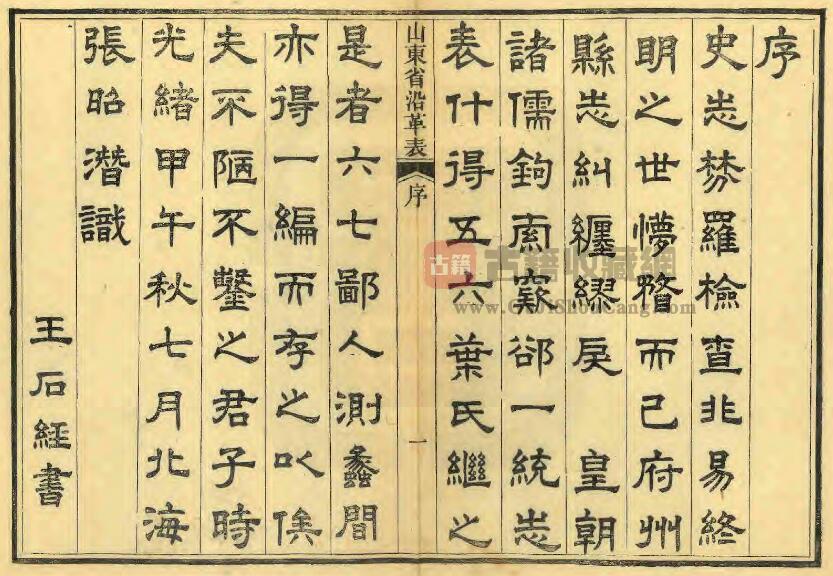 序
史志棼羅檢查非易終
明之世懜瞀而已府州
縣志糾纏繆戾 皇朝
諸儒鉤索窾郤一統志
表什得五六葉氏繼之
山東省沿革表 序 一
是者六七鄙人測蠡間
亦得一編而存之以俟
夫不陋不鑿之君子時
光緒甲午秋七月北海
張昭潛識
王石經書
古籍 古籍收藏網
www.GujiShouCang.com